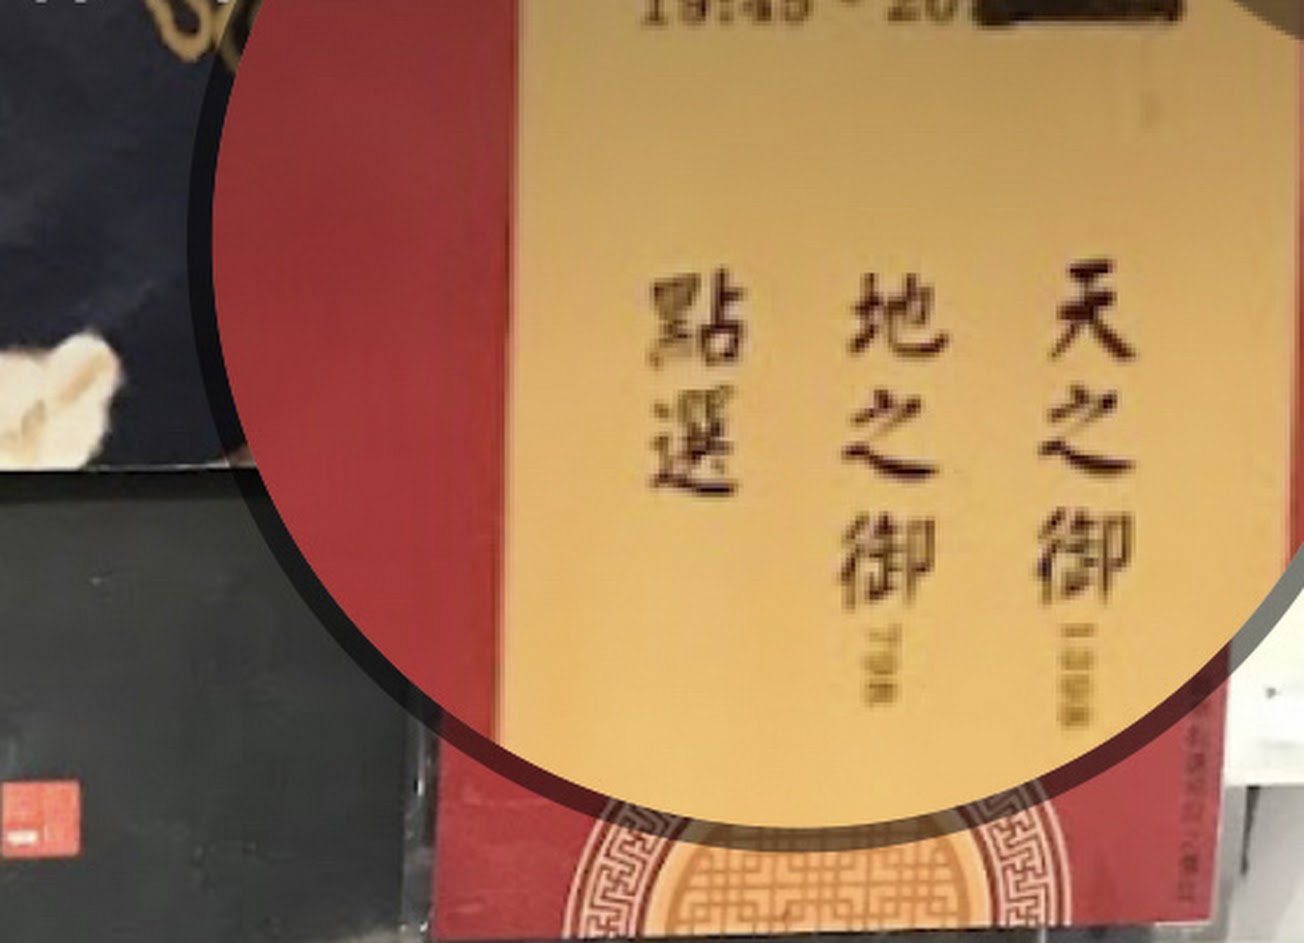 19:45 - 20
天之御 1398
地之御 798
點選